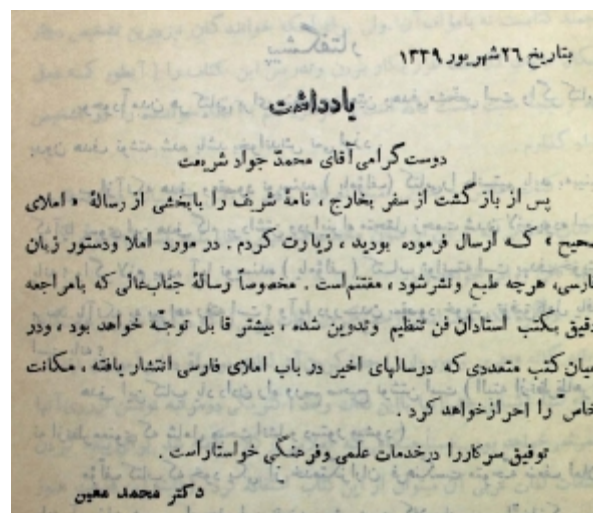 بتاریخ ۲۶ شهریور ۱۳۳۹
پیشگفتار
یادداشت
دوست گرامی آقای محمدّ جواد شریعت
پس از بازگشت از سفر بخارج ، نامهٔ شریف را بابخشی از رسالهٔ « املای
صحیح » کـه ارسال فرموده بودید ، زیارت کردم . در مورد املا ودستور زبان
فارسی، هرچه طبع ونشرشود ، مغتنم‌است . مخصوصاً رسالهٔ جنابعالی که بامراجعه
دقیق بکتب استادان فن تنظیم وتدوین شده ، بیشتر قابل توجّه خواهد بود ، ودر
میان کتب متعددی که درسالهای اخیر در باب املای فارسی انتشار یافته ، مکانت
خاصّ را احرازخواهد کرد .
توفیق سرکاررا درخدمات علمی وفرهنگی خواستاراست .
دکتر محمد معین